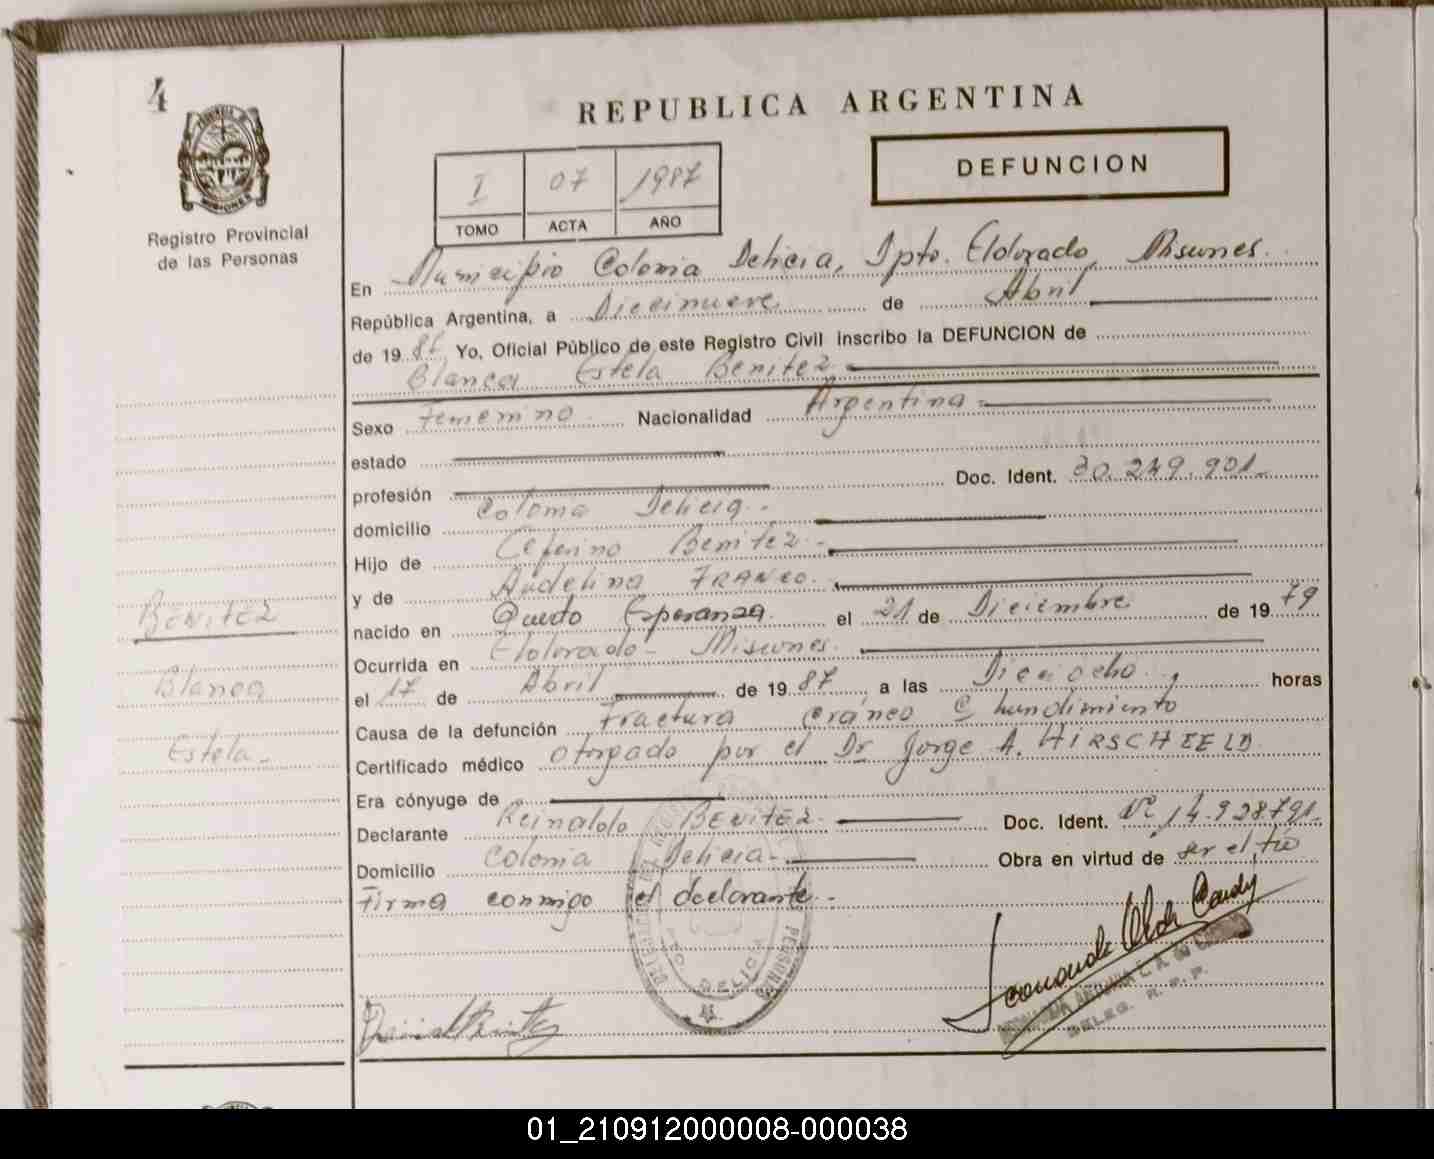 4
REPUBLICA ARGENTINA
PROVINCIA DE
MISIONES
Registro Provincial
de las Personas
I 07 1987
TOMO ACTA AÑO
DEFUNCION
En Municipio Colonia Delicia, Dpto. Eldorado, Misiones.
República Argentina, a Diecinueve de Abril
de 19 Yo, Oficial Público de este Registro Civil inscribo la DEFUNCION de
Blanca Estela Benitez
Sexo Femenino. Nacionalidad Argentina-
estado
profesión Doc. Ident. 30.249.901-
domicilio Colonia Delicia.-
Hijo de Ceferino Benitez.-
y de Audelina FRANCO.
nacido en Puerto Esperanza. el 21 de Diciembre de 1979
Ocurrida en Eldorado- Misiones.
el 17 de Abril de 1987, a las Dieciocho, horas
Causa de la defunción Fractura cráneo C hundimiento
Certificado médico otorgado por el Dr. Jorge A. HIRSCHFELD.
Era cónyuge de
Declarante Reinaldo BENITEZ. Doc. Ident. Nº 14.928791.
Domicilio Colonia Delicia- Obra en virtud de ser el tío
Firma conmigo el declarante.-
BENITEZ
Blanca
Estela-
DELICIA
DELEG. R. P. P.
01_210912000008-000038